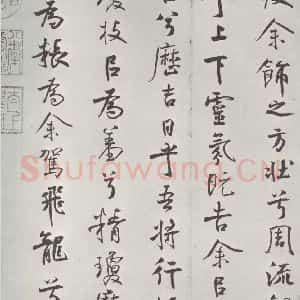 及余飾之方壯兮周流
乎上下靈氛既告余㠯
占兮歷吉日乎吾將行
枝㠯為羞兮精瓊
為粻為余駕飛龍兮
Shufawang.CN